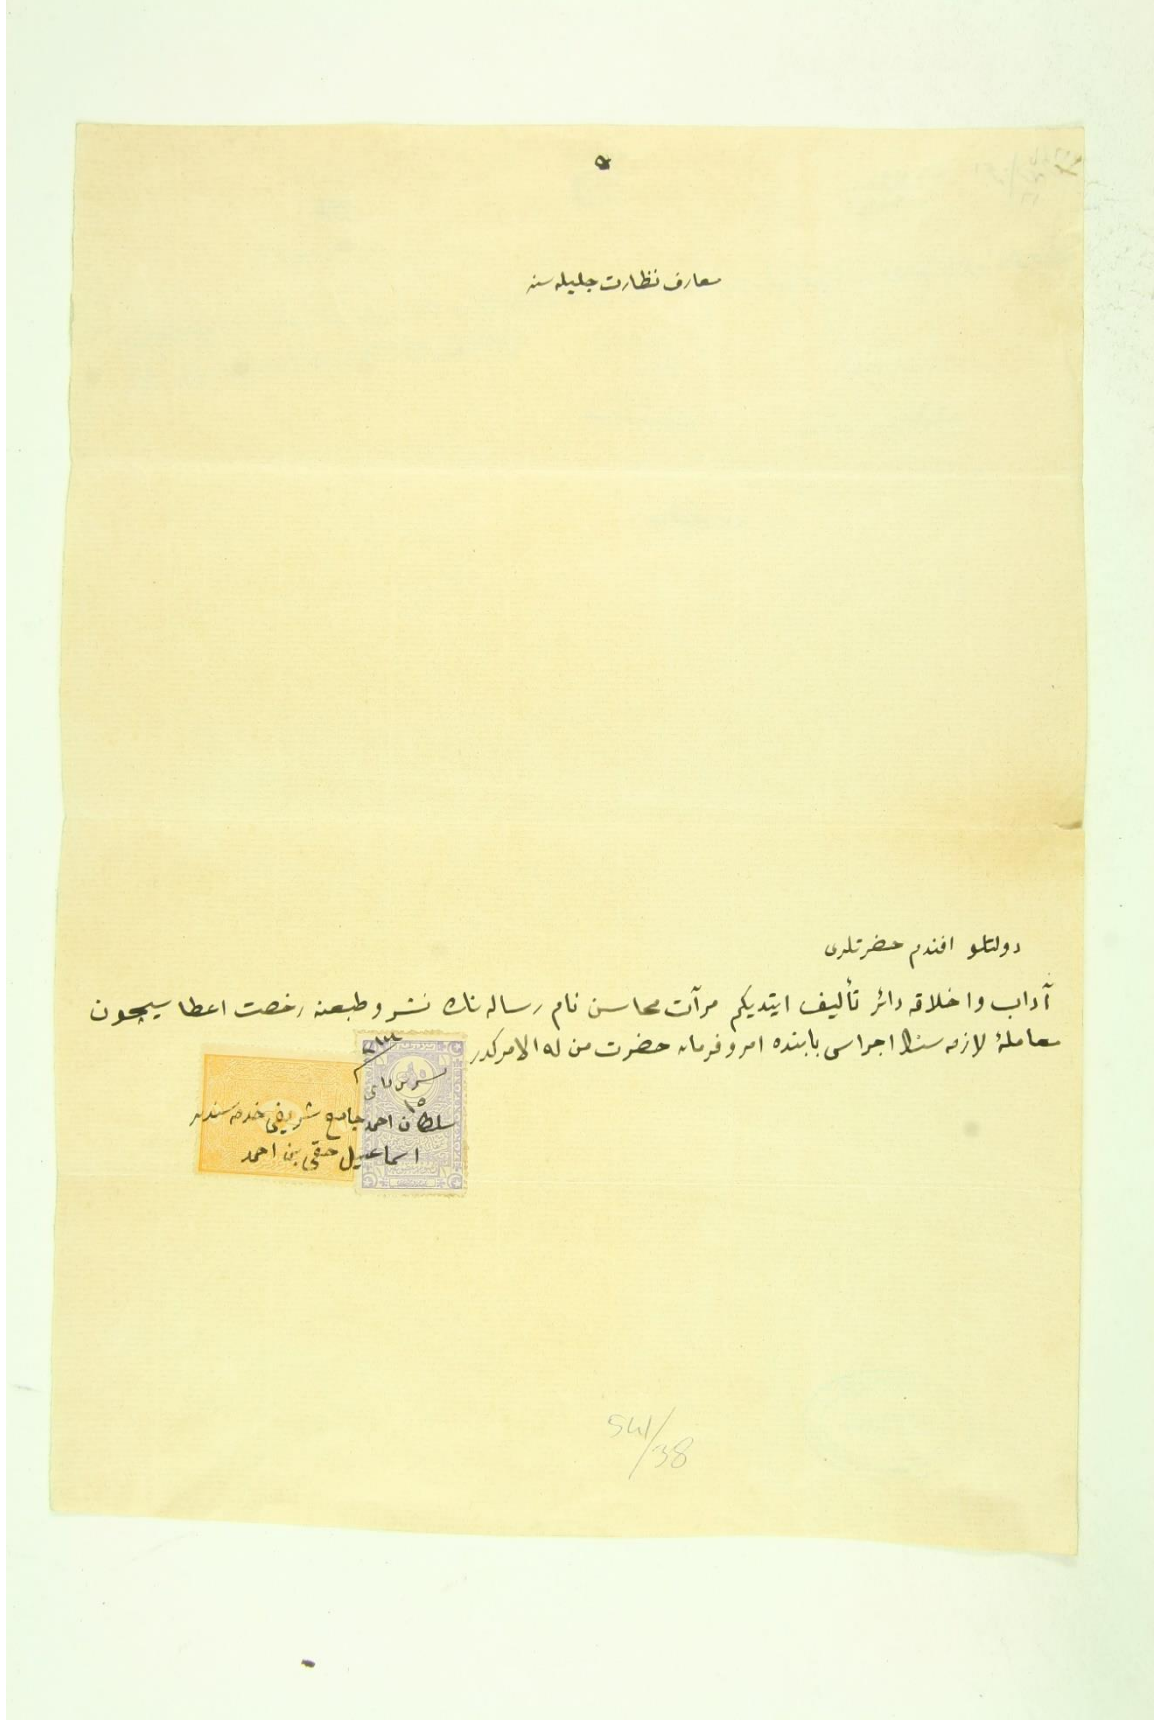 معارف نظارت جليله سنه
دولتلو افندم حضرتلرى
آداب واخلاقه دائر تأليف ايتديكم مرآت محاسن نام رساله نك نشر وطبعنه رخصت اعطا سيچون
معاملۀ لازمه سنك اجراسى بابنده امر وفرمان حضرت من له الامركدر
١٥
سلطان احمد جامع شريفى خدمه سندن
اسماعيل حقى بن احمد
541/38